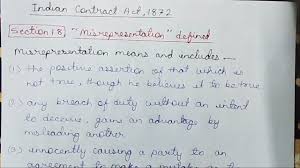 Indian Contract Act, 1872
Section 18) "Misrepresentation" defined
misrepresentation means and includes —
(1) the positive assertion of that which is
not true, though he believes it to be true
(2) any breach of duty without an intent
to deceive, gain an advantage by
misleading another
(3) innocently causing a party to an
agreement to make a mistake as to